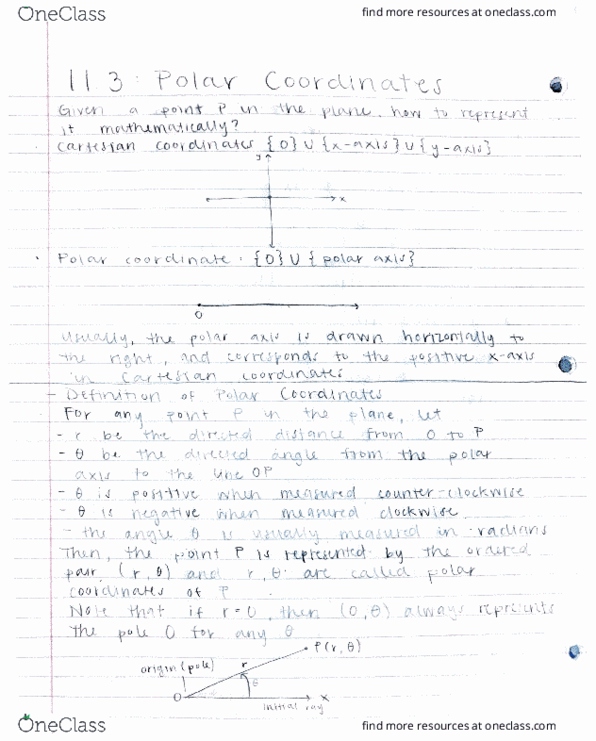 OneClass
find more resources at oneclass.com
11.3: Polar Coordinates
Given a point P in the plane, how to represent
it mathematically?
Cartesian coordinates {0} U {x-axis} U {y-axis}
y
x
Polar coordinate: {0} U {polar axis}
0
Usually, the polar axis is drawn horizontally to
the right, and corresponds to the positive x-axis
in Cartesian coordinates
- Definition of Polar Coordinates
For any point P in the plane, let
- r be the directed distance from O to P
- θ be the directed angle from the polar
axis to the line OP
- θ is positive when measured counter-clockwise
- θ is negative when measured clockwise
- the angle θ is usually measured in radians
Then, the point P is represented by the ordered
pair (r, θ) and r, θ are called polar
coordinates of P
Note that if r = 0, then (0, θ) always represents
the pole O for any θ
P(r, θ)
origin (pole)
r
θ
O
x
initial ray
OneClass
find more resources at oneclass.com